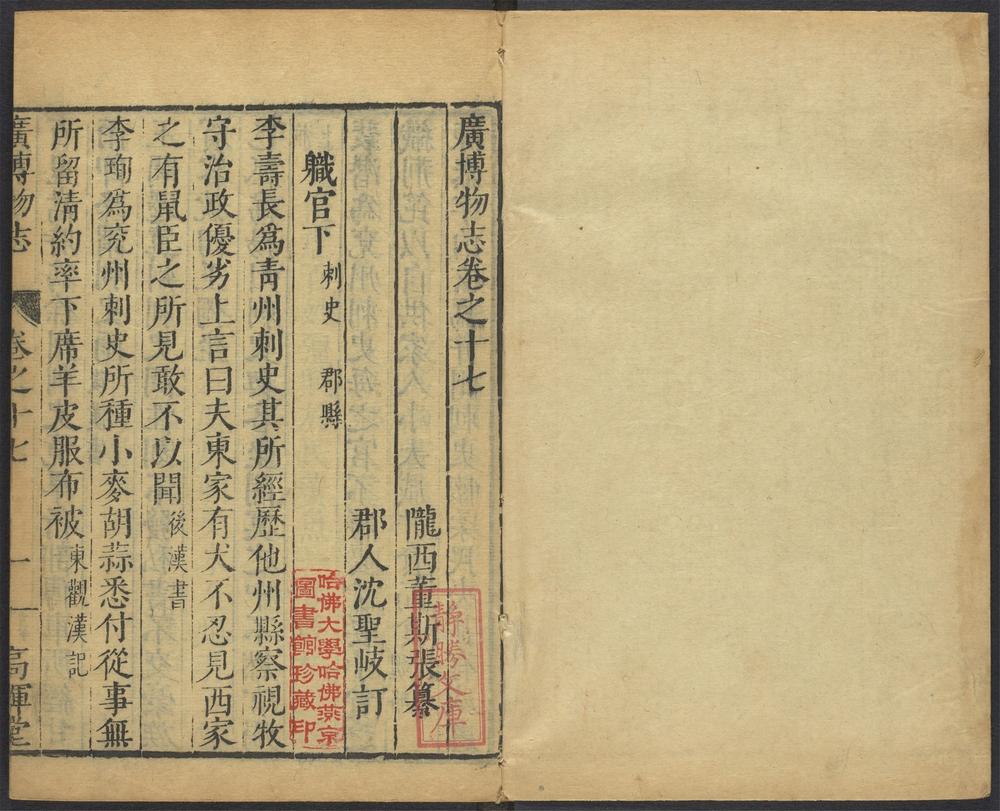 廣博物志卷之十七
隴西董斯張纂
郡人沈聖岐訂
職官下 刺史 郡縣
李壽長爲青州刺史其所經歷他州縣察視牧
守治政優劣上言曰夫東家有犬不忍見西家
之有鼠臣之所見敢不以聞後漢書
李珣爲兖州刺史所種小麥胡蒜悉付從事無
所留淸約率下席羊皮服布被東觀漢記
廣博物志 卷之十七 一 高暉堂
靜勝文庫
哈佛大學哈佛燕京
圖書館珍藏印